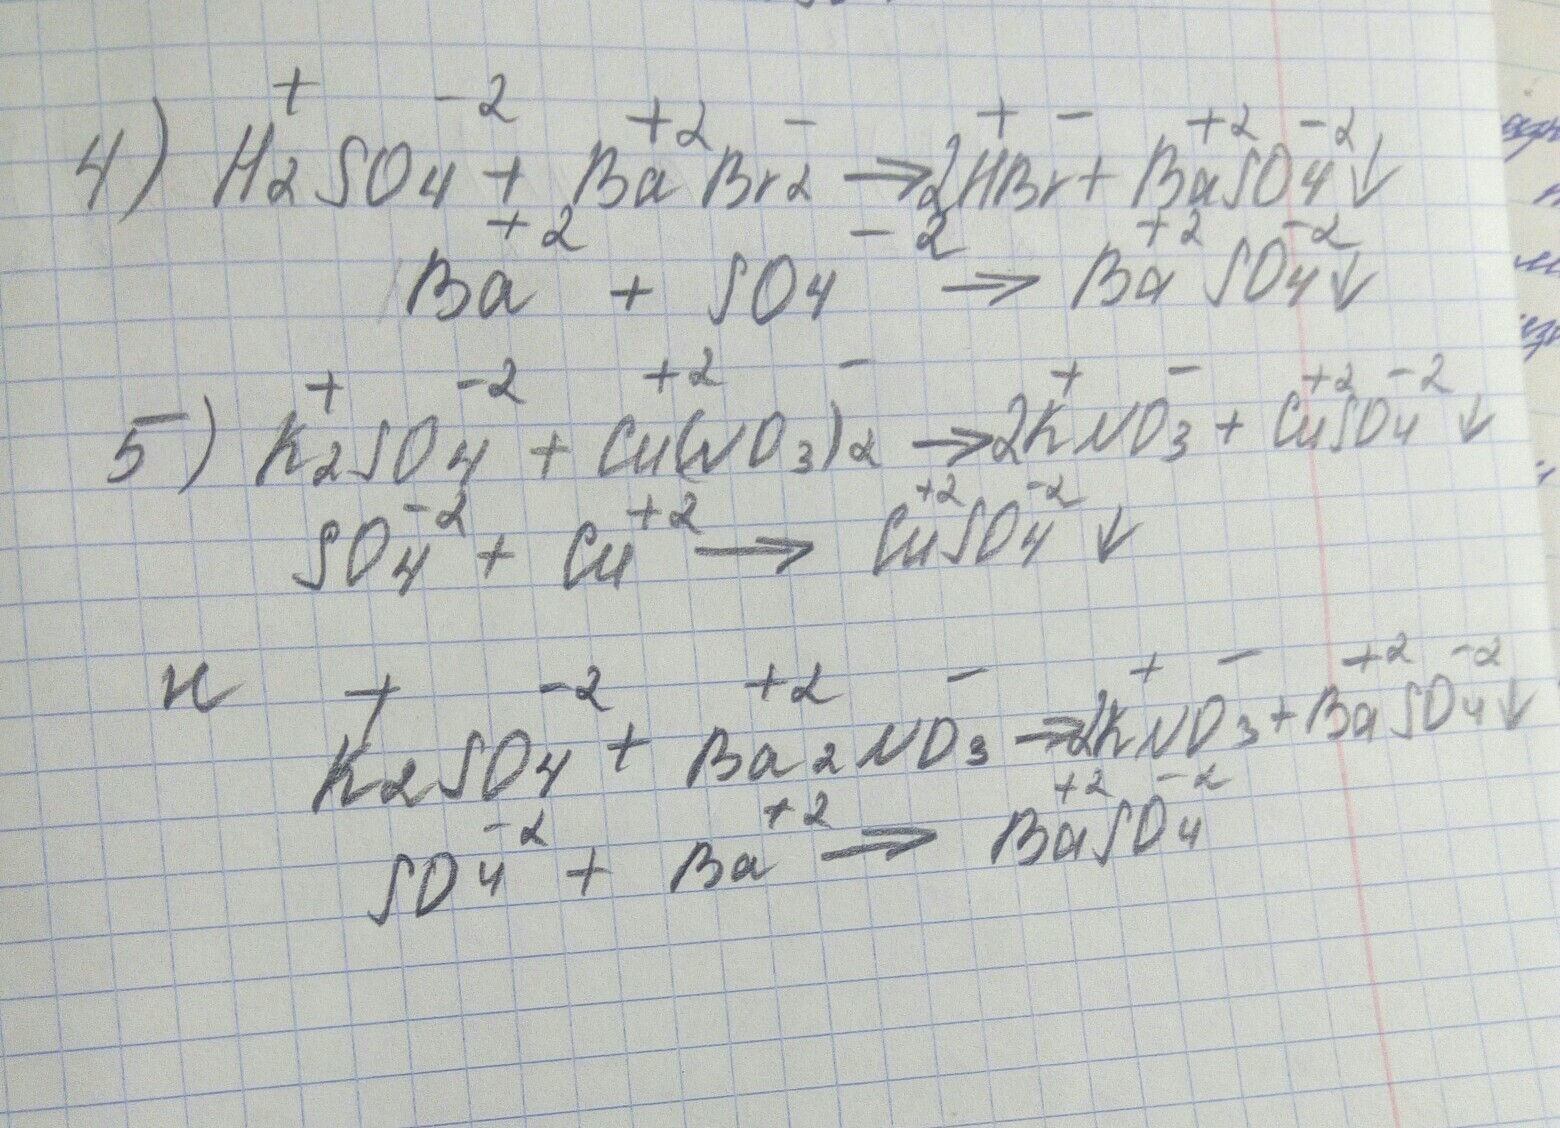 4) H₂⁺SO₄⁻² + Ba⁺²Br₂⁻ → 2H⁺Br⁻ + Ba⁺²SO₄⁻²↓
Ba⁺² + SO₄⁻² → Ba⁺²SO₄⁻²↓
5) K₂⁺SO₄⁻² + Cu⁺²(NO₃)₂⁻ → 2K⁺NO₃⁻ + Cu⁺²SO₄⁻²↓
SO₄⁻² + Cu⁺² → Cu⁺²SO₄⁻²↓
и K₂⁺SO₄⁻² + Ba₂⁺²NO₃⁻ → 2K⁺NO₃⁻ + Ba⁺²SO₄⁻²↓
SO₄⁻² + Ba⁺² → Ba⁺²SO₄⁻²